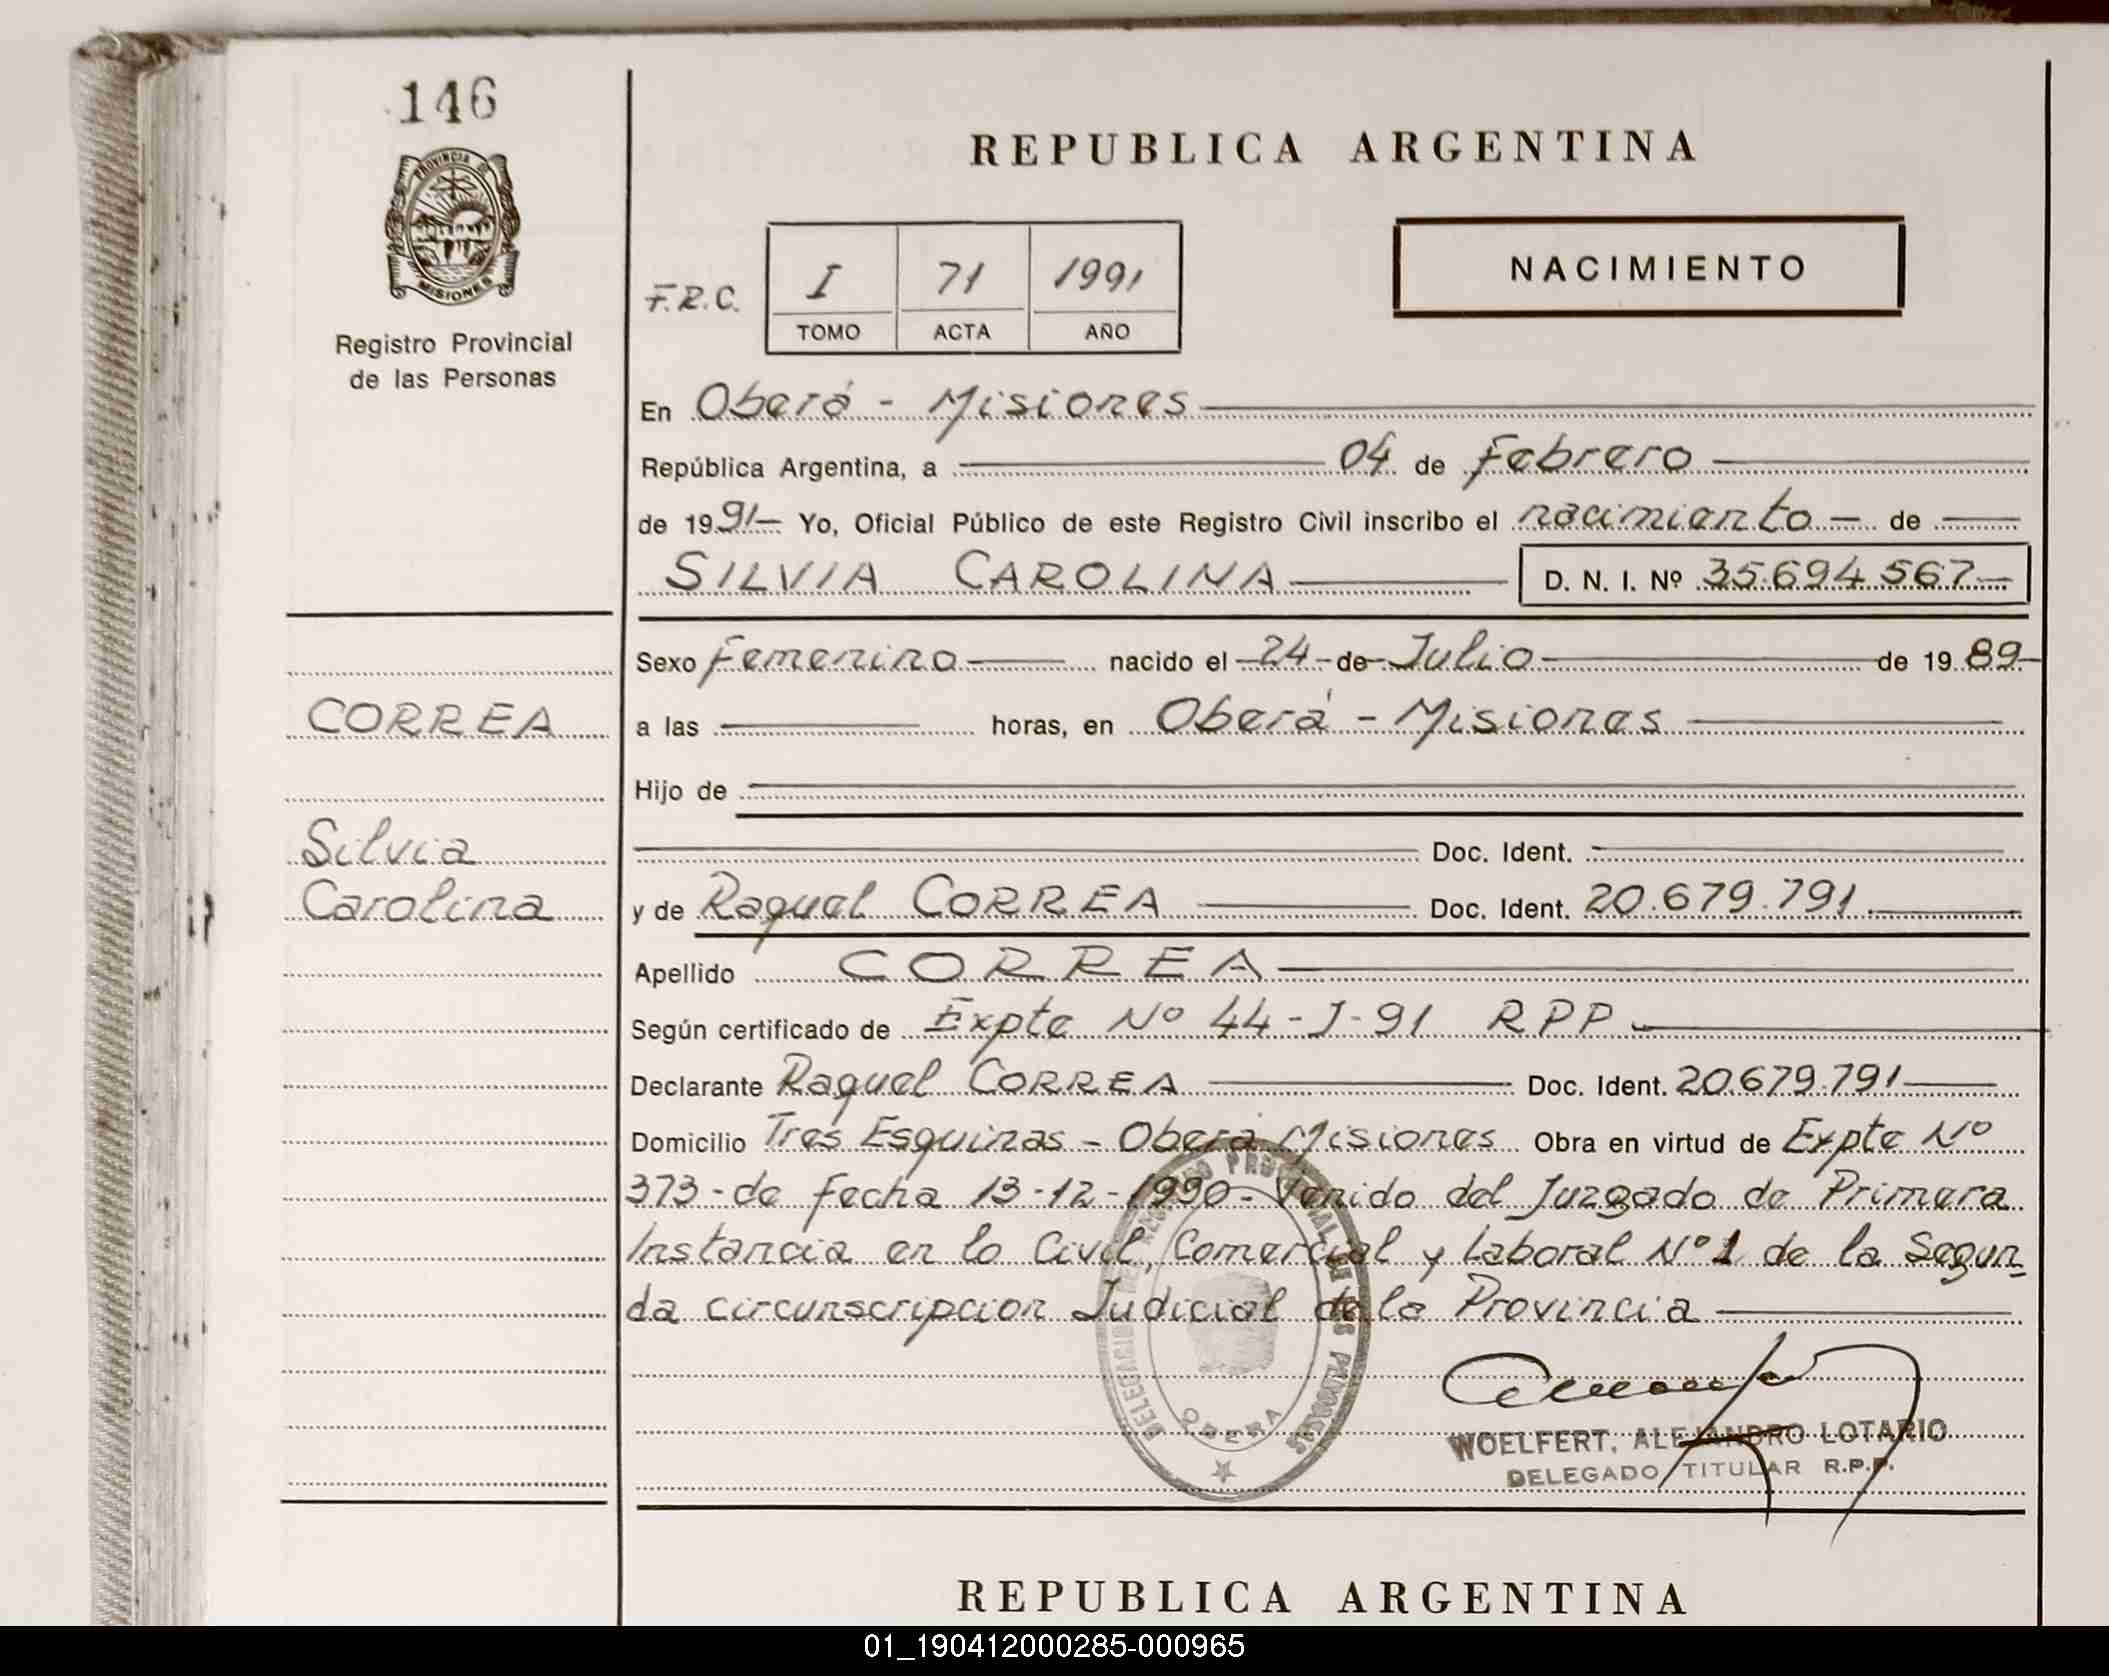 146
PROVINCIA DE
MISIONES
Registro Provincial
de las Personas
CORREA
Silvia
Carolina
REPUBLICA ARGENTINA
F.R.C.
I 71 1991
TOMO ACTA AÑO
NACIMIENTO
En Oberá - Misiones
República Argentina, a 04 de Febrero
de 1991 Yo, Oficial Público de este Registro Civil inscribo el nacimiento de
SILVIA CAROLINA D. N. I. Nº 35.694.567
Sexo Femenino nacido el 24 de Julio de 1989
a las horas, en Oberá - Misiones
Hijo de
Doc. Ident.
y de Raquel CORREA Doc. Ident. 20.679.791
Apellido CORREA
Según certificado de Expte Nº 44-J-91 RPP
Declarante Raquel CORREA Doc. Ident. 20.679.791
Domicilio Tres Esquinas - Oberá Misiones Obra en virtud de Expte Nº
373 - de fecha 13-12-1990 - Venido del Juzgado de Primera
Instancia en lo Civil, Comercial y Laboral Nº 1 de la Segun-
da circunscripcion Judicial de la Provincia
OBERA
WOELFERT, ALEJANDRO LOTARIO
DELEGADO TITULAR R.P.P.
REPUBLICA ARGENTINA
01_190412000285-000965